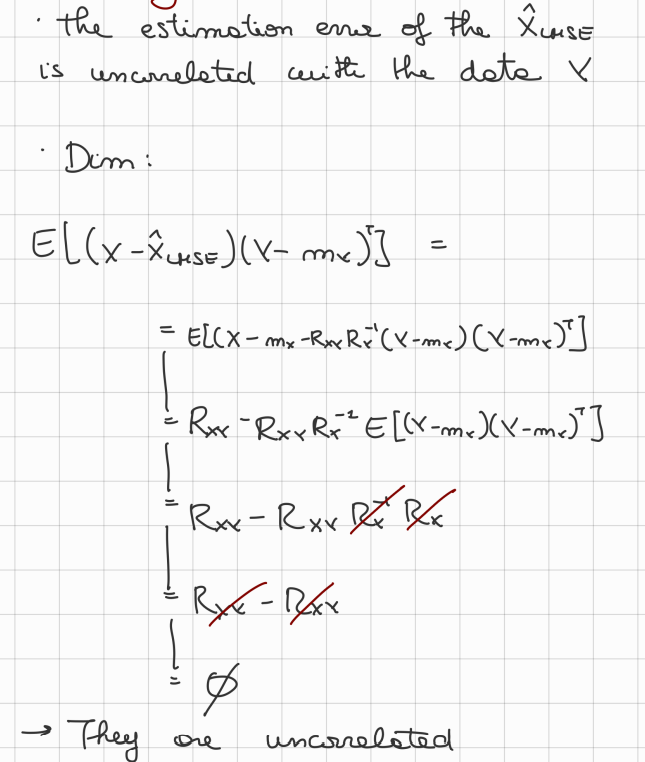 · the estimation error of the X̂_LMSE
is uncorrelated with the data Y
· Dim:
E[(X - X̂_LMSE)(Y - m_Y)^T] =
= E[(X - m_X - R_XY R_Y^-1 (Y - m_Y)(Y - m_Y)^T]
= R_XY - R_XY R_Y^-1 E[(Y - m_Y)(Y - m_Y)^T]
= R_XY - R_XY R_Y^-1 R_Y
= R_XY - R_XY
= ∅
→ They are uncorrelated